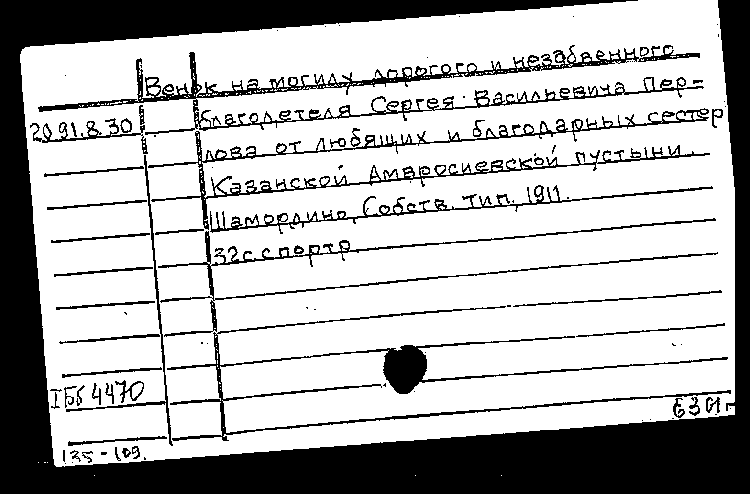 Венок на могилу дорогого и незабвенного
20.91.8.30
благодетеля Сергея Васильевича Пер-
лова от любящих и благодарных сестер
Казанской Амвросиевской пустыни.
Шамордино, Собств. тип., 1911.
32с. с портр.
I Бб 4470
135-109.